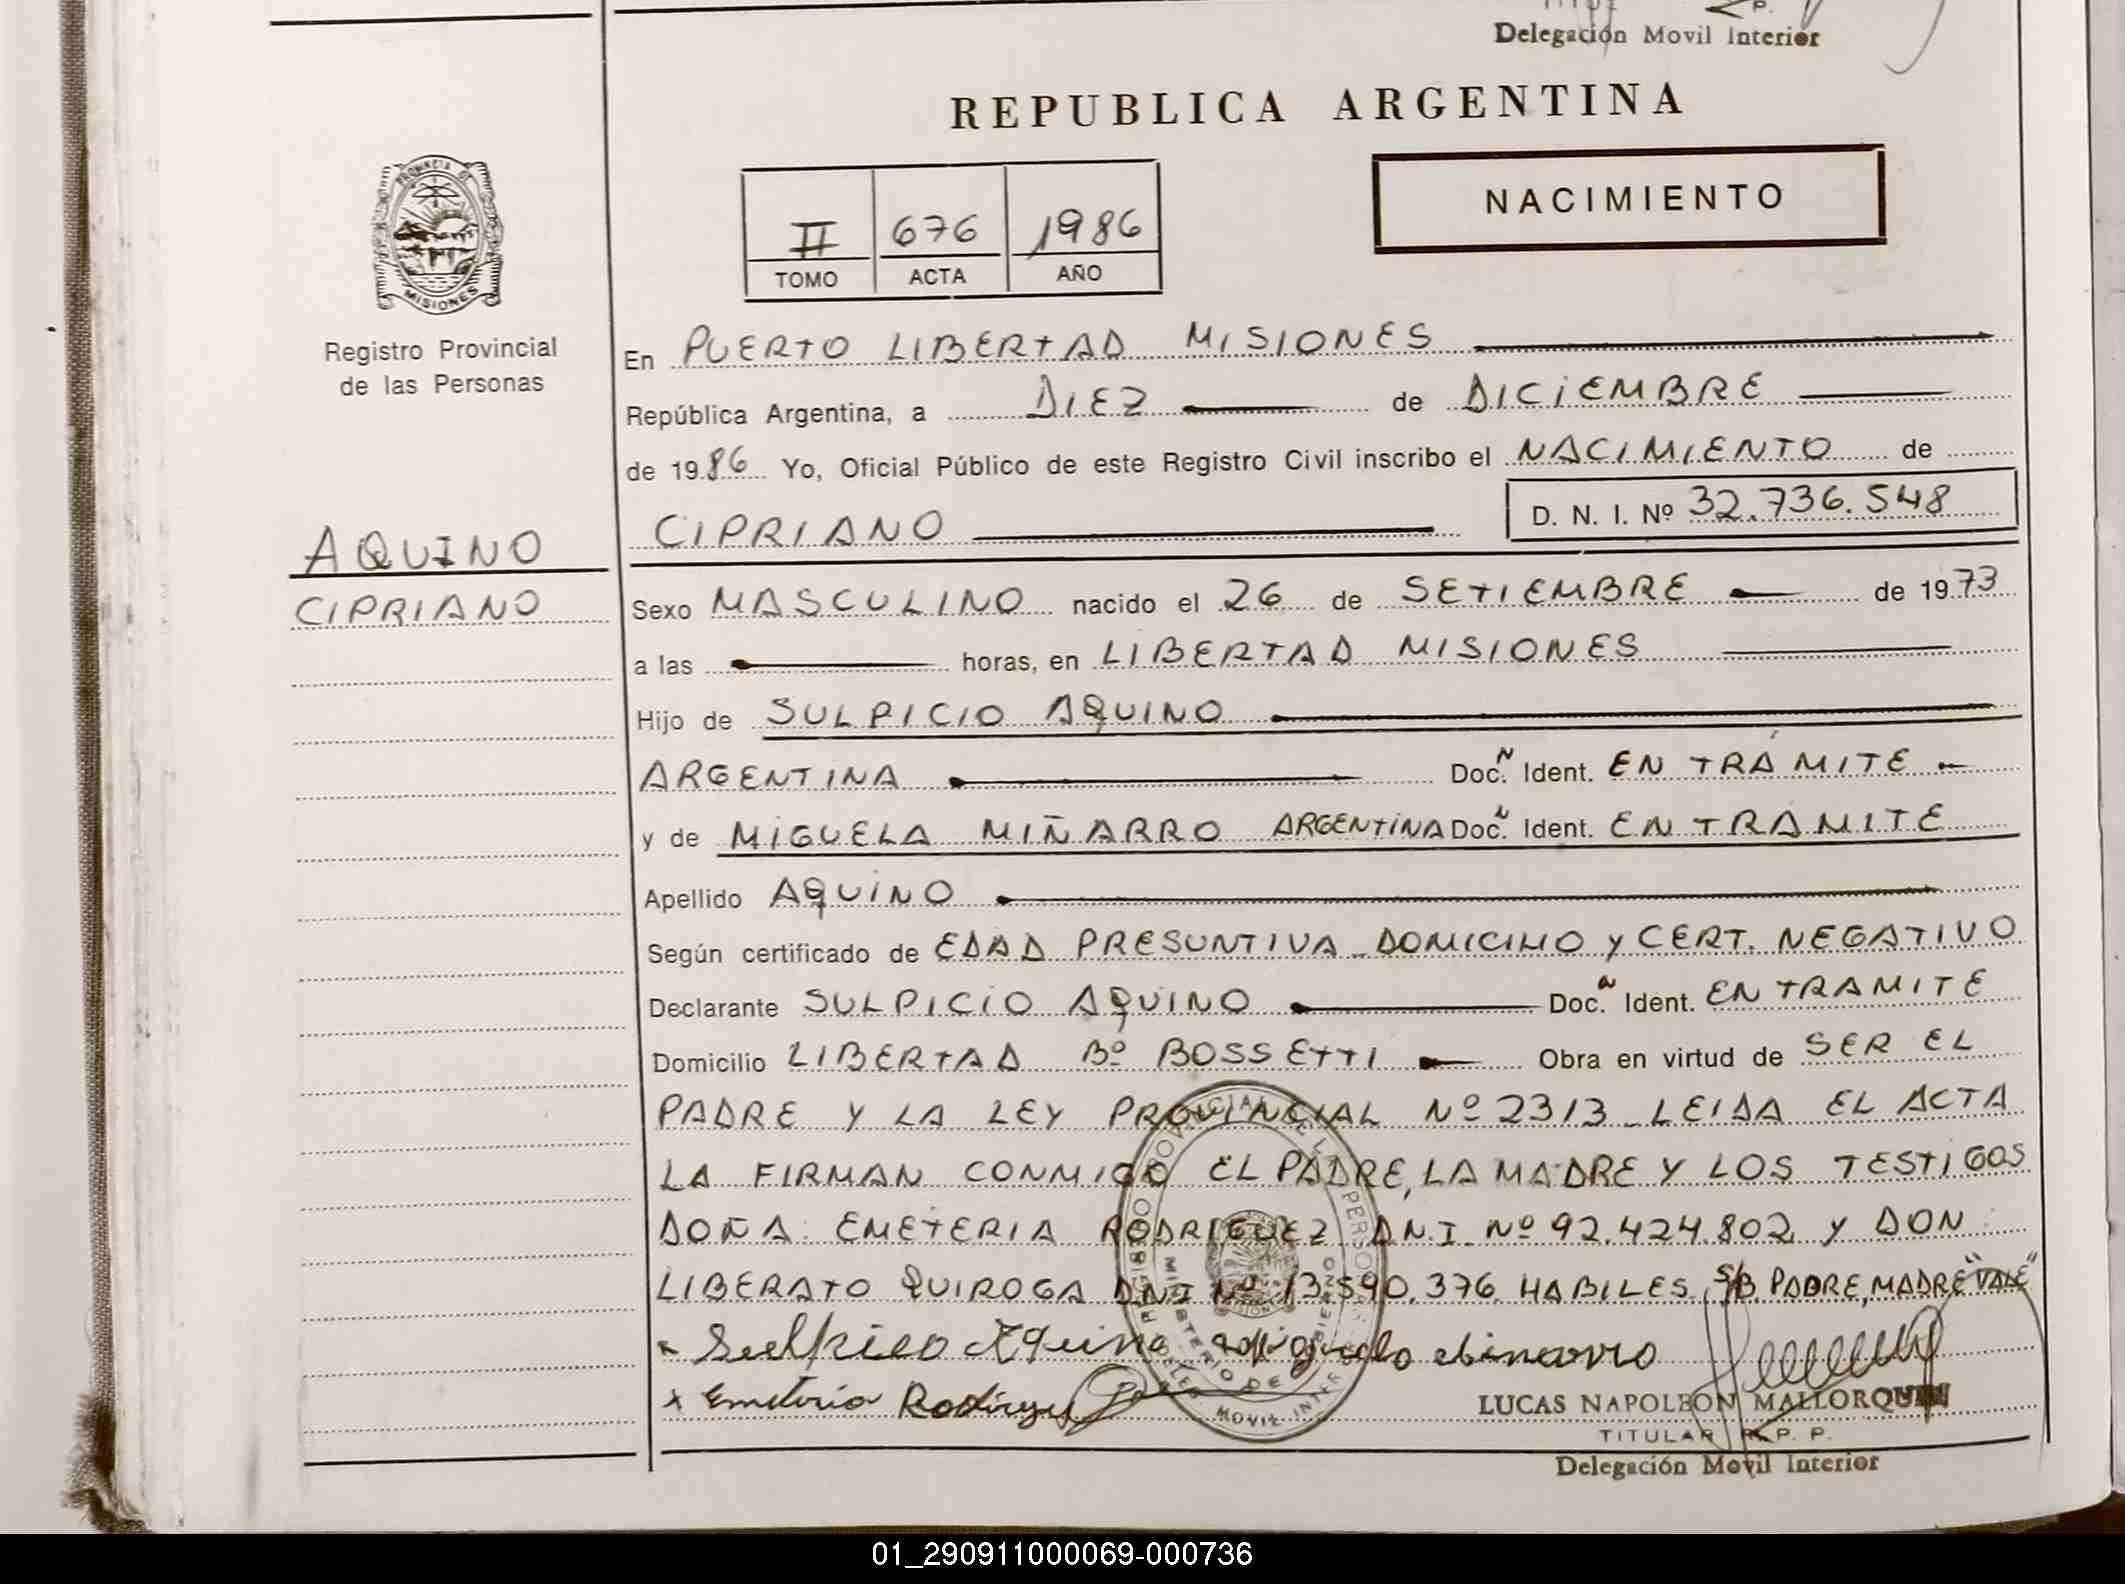 Delegación Movil Interior
REPUBLICA ARGENTINA
NACIMIENTO
II 676 1986
TOMO ACTA AÑO
PROVINCIA DE
MISIONES
Registro Provincial
de las Personas
AQUINO
CIPRIANO
En PUERTO LIBERTAD MISIONES
República Argentina, a DIEZ de DICIEMBRE
de 1986 Yo, Oficial Público de este Registro Civil inscribo el NACIMIENTO de
CIPRIANO D. N. I. Nº 32.736.548
Sexo MASCULINO nacido el 26 de SETIEMBRE de 1973
a las horas, en LIBERTAD MISIONES
Hijo de SULPICIO AQUINO
ARGENTINA Doc. Ident. EN TRÁMITE
y de MIGUELA MIÑARRO ARGENTINA Doc. Ident. EN TRAMITE
Apellido AQUINO
Según certificado de EDAD PRESUNTIVA - DOMICILIO y CERT. NEGATIVO
Declarante SULPICIO AQUINO Doc. Ident. EN TRAMITE
Domicilio LIBERTAD Bº BOSSETTI Obra en virtud de SER EL
PADRE Y LA LEY PROVINCIAL Nº 2313 - LEIDA EL ACTA
LA FIRMAN CONMIGO EL PADRE, LA MADRE Y LOS TESTIGOS
DOÑA: EMETERIA RODRIGUEZ D.N.I. Nº 92.424.802 y DON
LIBERATO QUIROGA DNI Nº 13.590.376 HABILES. S/B. PADRE, MADRE "VALE"
x Sulpicio Aquino
x Emeteria Rodriguez
LUCAS NAPOLEON MALLORQUIN
TITULAR R. P. P.
Delegación Movil Interior
01_290911000069-000736